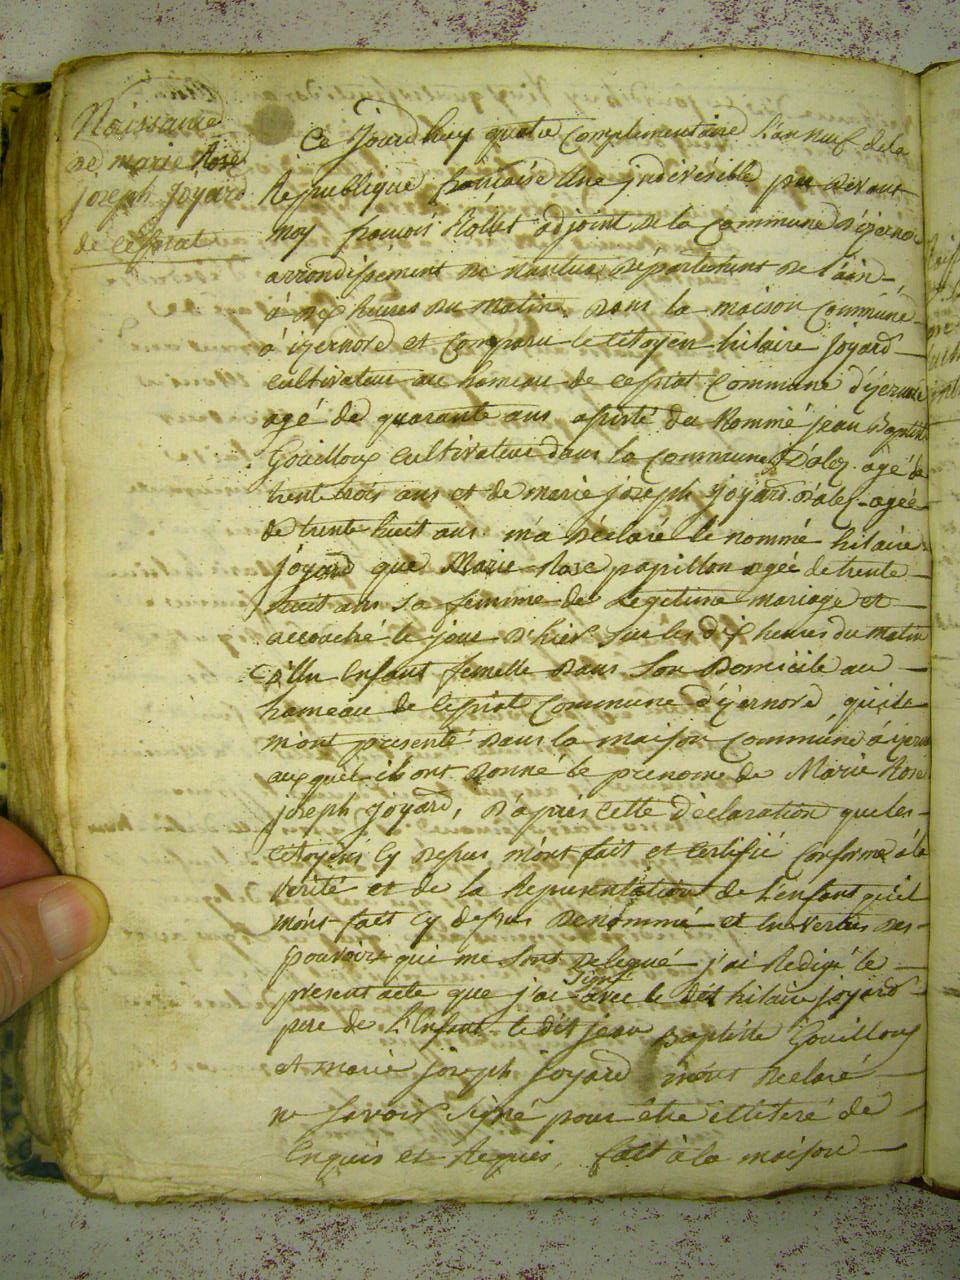 Naissance
de marie Rose
joseph Joyard
de Cessiat
Ce Jourdhuy quatre Complementaire L'an neuf de la
Republique françoise Une jndivisible par devant
moy françois Rollet adjoint de la Commune d'izernore
arrondissement de nantua Département de L'ain
à dix heures du matin, dans la maison Commune
à izernord et Comparu le Citoyen hilaire Joyard
cultivateur au hameau de Cessiat Commune d'izernore
agé de quarante ans assisté du Nommé jean Baptiste
Gouilloux cultivateur dans la Commune D'alex agé de
trente trois ans et de marie joseph Joyard D'alex agée
de trente huit ans m'a Déclaré le nommé hilaire
Joyard que Marie Rose papillon agée de trente
huit ans sa femme de Legitime mariage et
accouché le jour d'hier sur les dix heures du matin
d'Un Enfant femelle dans Son Domicile au
hameau de Cessiat Commune d'izernord, qu'ils
m'ont presenté dans la maison Commune à izernore
auxquel ils ont Donné le prenom de Marie Rose
joseph Joyard, D'après cette déclaration que les
Citoyens Cy dessus m'ont fait et Certifié Conforme à la
verité et de la Representation de L'enfant qu'il
m'ont fait Cy dessus Denommé et En vertus des
pouvoirs qui me sont delegué j'ai Redigé le
present acte que j'ai signé avec le dit hilaire Joyard
pere de L'Enfant le dit jean Baptiste Gouilloux
et marie joseph Joyard m'ont declaré
ne savoir signé pour etre illiteré de
Enquis et Requis, fait à la maison